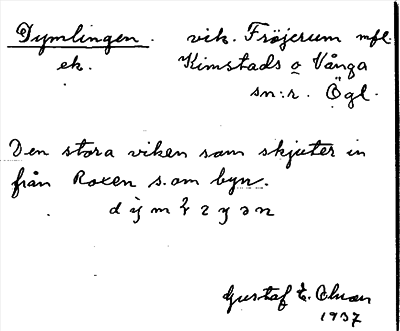 Dymlingen. vik. Fröjerum mfl.
ek. Kimstads o Vånga
sn:r. Ögl.
Den stora viken som skjuter in
från Roxen s.om byn.
Gustaf E. Olsson
1937